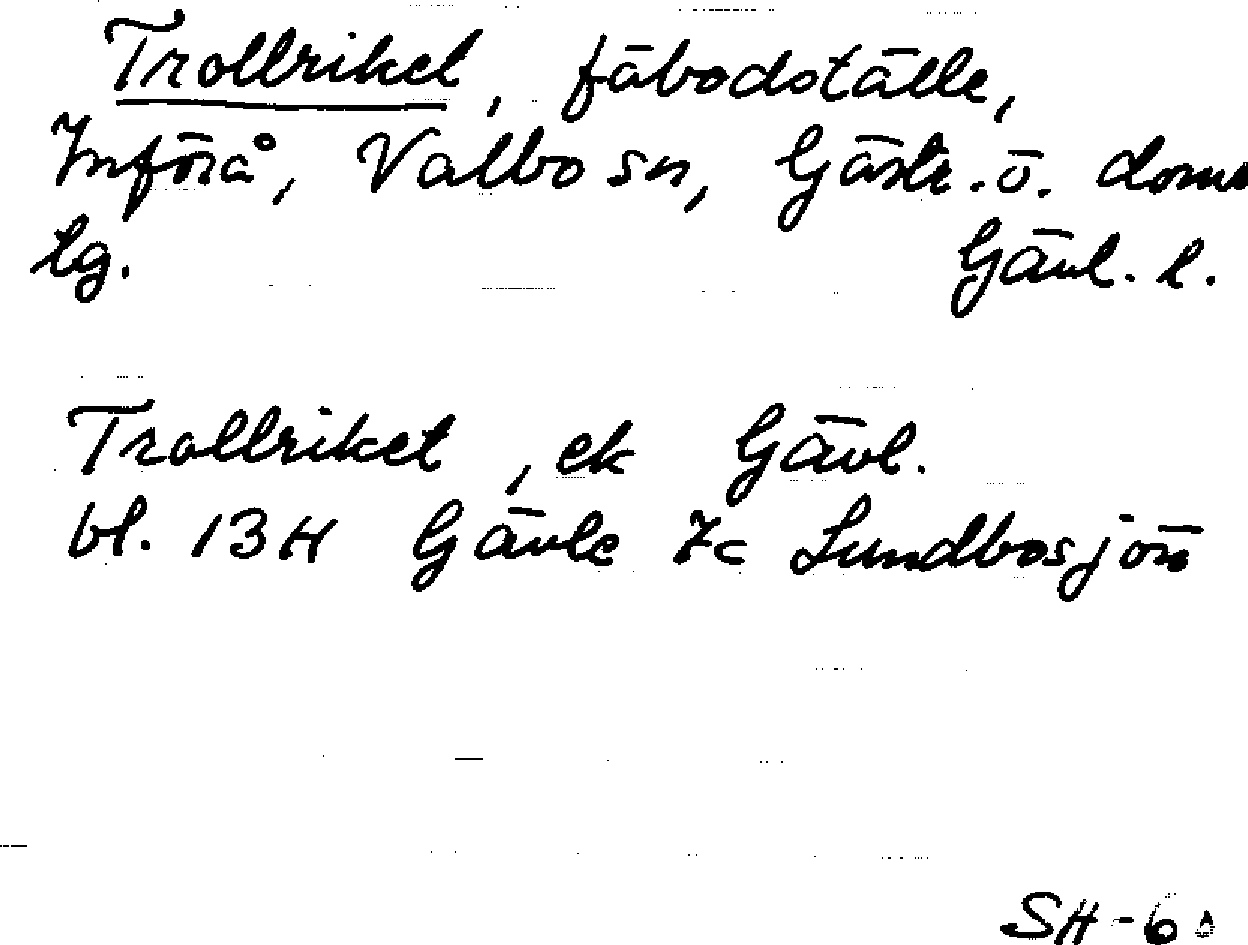 Trollriket, fäbodställe,
Införå, Valbo sn, Gästr. ö. doms
lg. Gävl. l.
Trollriket, ek Gävl.
bl. 13H Gävle 7c Lundbosjön
SH-6